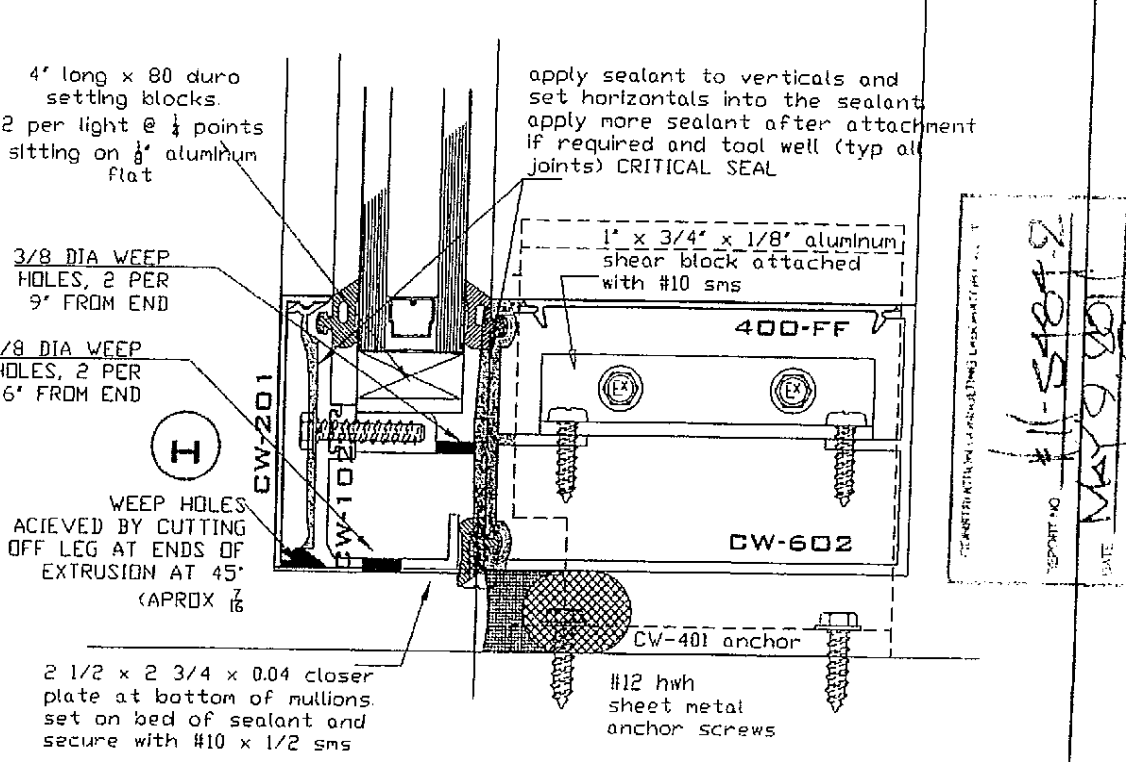 4" long x 80 duro
setting blocks.
2 per light @ ¼ points
sitting on ⅛" aluminum
flat
apply sealant to verticals and
set horizontals into the sealant
apply more sealant after attachment
if required and tool well (typ all
joints) CRITICAL SEAL
3/8 DIA WEEP
HOLES, 2 PER
9" FROM END
/8 DIA WEEP
HOLES, 2 PER
6" FROM END
1" x 3/4" x 1/8" aluminum
shear block attached
with #10 sms
400-FF
EX
EX
CW-201
CW-102
H
WEEP HOLES
ACIEVED BY CUTTING
OFF LEG AT ENDS OF
EXTRUSION AT 45°
(APROX 7/16
CW-602
CW-401 anchor
#12 hwh
sheet metal
anchor screws
2 1/2 x 2 3/4 x 0.04 closer
plate at bottom of mullions.
set on bed of sealant and
secure with #10 x 1/2 sms
CONSTRUCTION CONSULTING LABORATORY
REPORT NO
DATE MAY 9